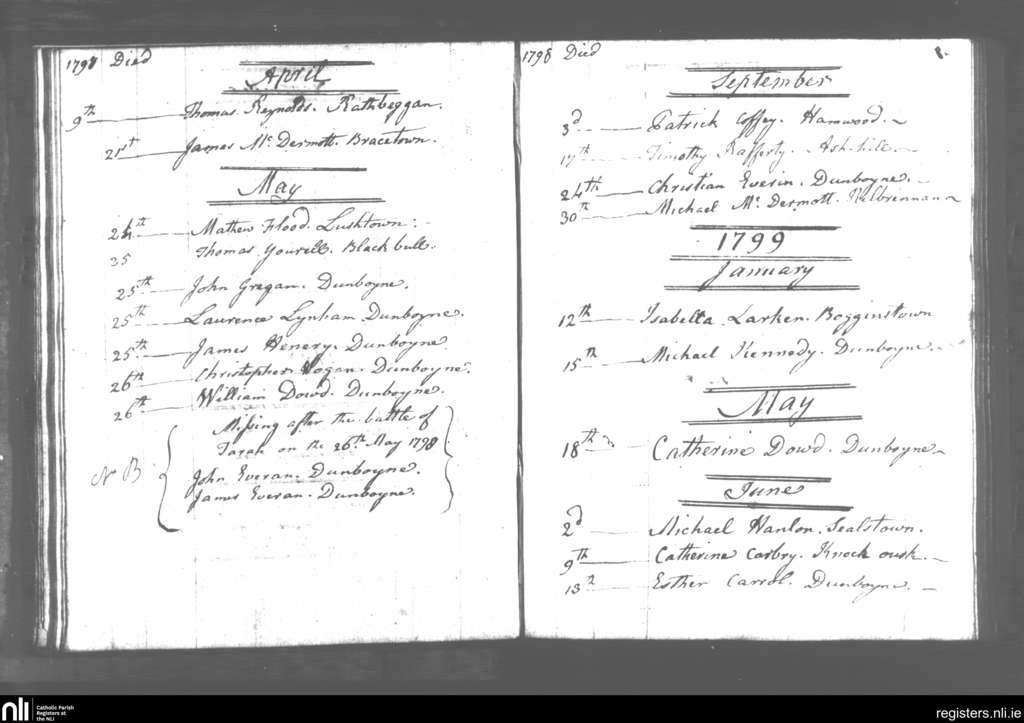 1798 Died
April
9th Thomas Reynolds. Rathbeggan.
21st James Mc Dermott. Bracetown.
May
24th Mathew Flood. Lushtown.
25 Thomas Yourell. Black bull.
25th John Gregan. Dunboyne.
25th Laurence Lynham Dunboyne.
25th James Henery. Dunboyne
26th Christopher Hogan. Dunboyne.
26th William Dowd. Dunboyne.
Missing after the battle of
Tarah on the 26th May 1798
N B
John Everan. Dunboyne.
James Everan. Dunboyne.
1798 Died 1.
September
3d Patrick Coffey. Hamwood.
17th Timothy Rafferty. Ash hill
24th Christian Everin. Dunboyne.
30th Michael Mc Dermott. Kilbrennan
1799
January
12th Isabella Larken. Bogginstown
15th Michael Kennedy. Dunboyne.
May
18th Catherine Dowd. Dunboyne.
June
2d Michael Hanlon. Sealstown.
9th Catherine Corbry. Knock ousk.
13th Esther Carrol. Dunboyne.
nli Catholic Parish
Registers at
the NLI
registers.nli.ie